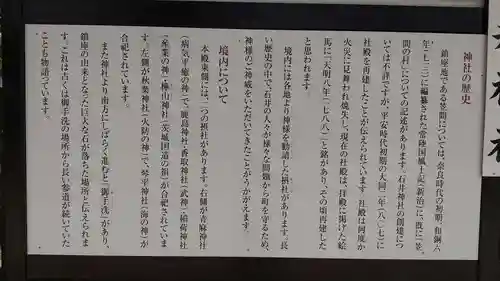 神社の歴史
鎮座地である笠間については、奈良時代の初期、和銅六
年(七一三)に編纂された常陸国風土記(新治)に、既に「笠
間の村」についての記述があります。石井神社の創建につ
いては不詳ですが、平安時代初期の大同二年(八〇七)に
社殿を再建したことが伝えられています。社殿は何度か
火災に見舞われ焼失し、現在の社殿は、拝殿に掲げた絵
馬に「天明八年(一七八八)」と銘があり、その頃再建した
と思われます。
境内には各地より神様を勧請した摂社があります。「長
い歴史の中で、石井の人々が様々な問題から町を守るため、
神様のご神威をいただいてきたことがうかがえます。
境内について
本殿東側には、二つの摂社があります。右側が青麻神社
(病気平癒の神)で、鹿島神社・香取神社(武神)・稲荷神社
(産業の神)・樺山神社(茨城国造の祖)が合祀されていま
す。左側が秋葉神社(火防の神)で、琴平神社(海の神)が
合祀されています。
また神社より南方にしばらく進むと「御手洗」があり、
鎮座の由来となった巨大な石が落ちた場所と伝えられま
す。これは古くは御手洗の場所から長い参道が続いていた
ことも物語っています。